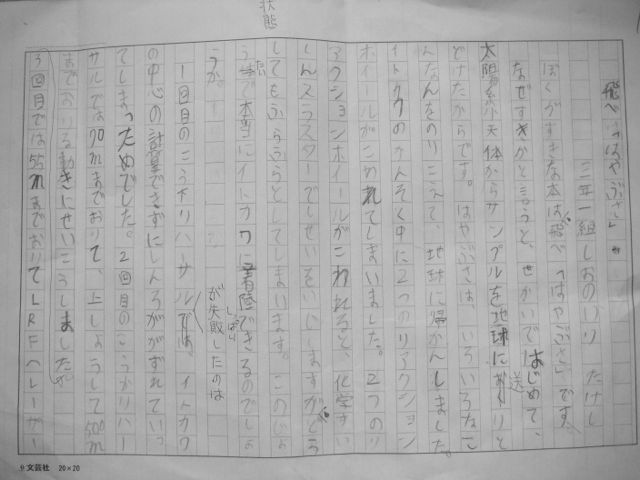 飛べ「はやぶさ」
三年一組しおのいり たけし
ぼくがすきな本は、飛べ「はやぶさ」です。
なぜすきかと言うと、せかいではじめて、
太陽系小天体からサンプルを地球におくりと
送
どけたからです。はやぶさは、いろいろなこ
んなんをのりこえて、地球に帰かんしました。
イトカワのかんそく中に2つのリアクション
ホイールがこわれてしまいました。2つのリ
アクションホイールがこわれると、化学すい
しんスラスターでしせいをいじしますが、どう
してもふらふらとしてしまいます。このじょ
状態
うたいで本当にイトカワに着陸できるのでしょ
うか。
しっぱい
が失敗したのは
1回目のこう下リハーサルでは、イトカワ
の中心の計算できずにしんろがずれてい
てしまっためでした。2回目のこうかリハー
サルでは70mまでおりて、上しょうして500m
までおりる動きにせいこうしました。
3回目では55mまでおりてLRFヘレーザー
文芸社 20×20